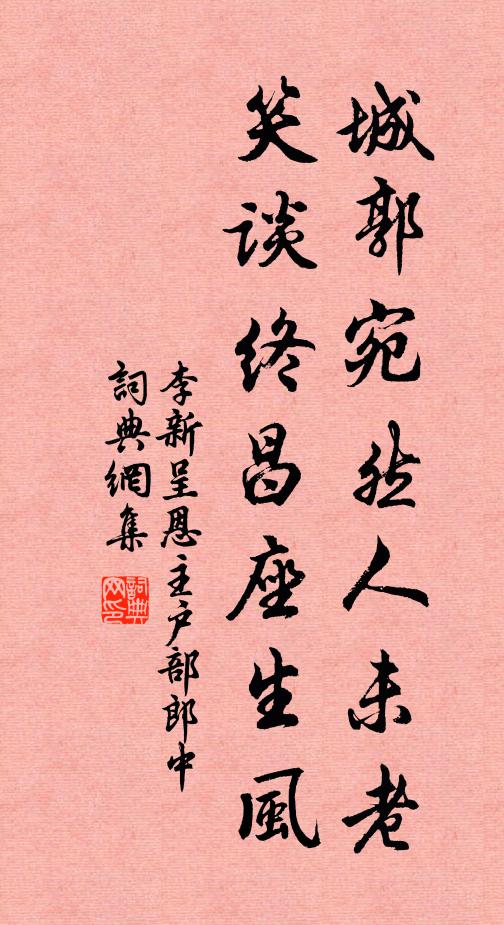 城郭宛然人未老
笑談終昌座生風
李新呈恩主户部郎中
詞典網集
詞典網印